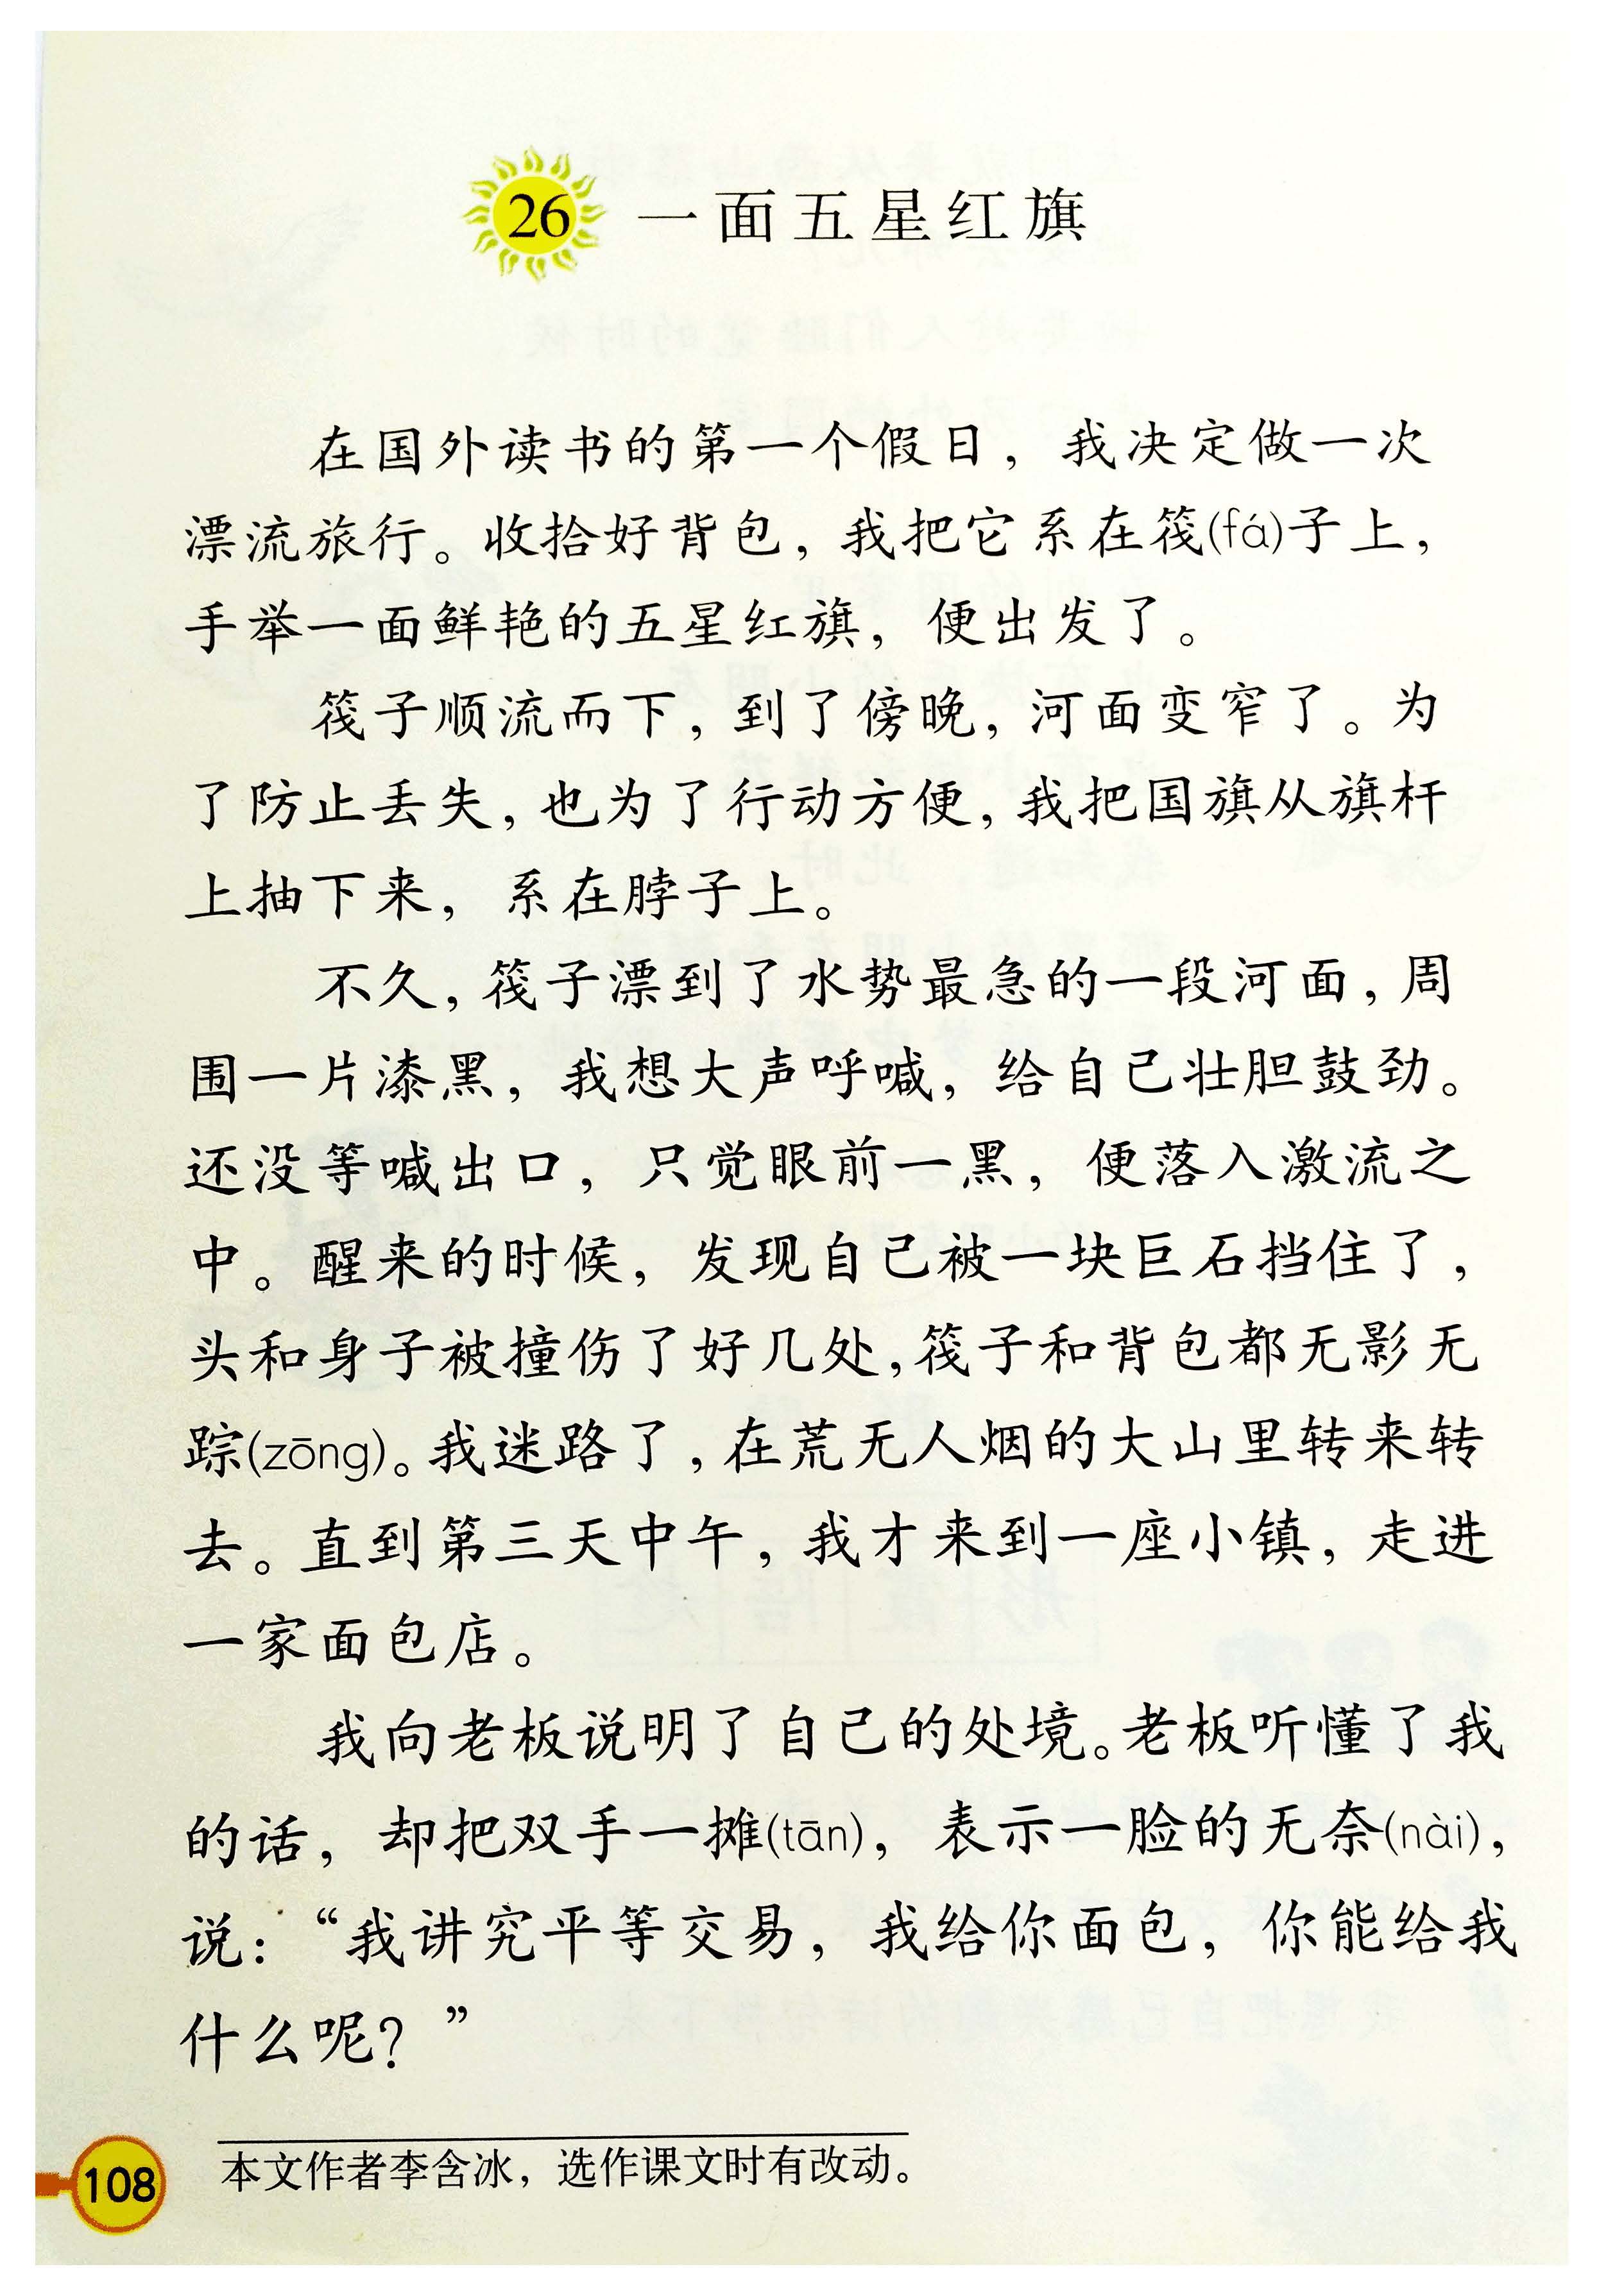 26 一面五星红旗
在国外读书的第一个假日，我决定做一次
漂流旅行。收拾好背包，我把它系在筏(fá)子上，
手举一面鲜艳的五星红旗，便出发了。
筏子顺流而下，到了傍晚，河面变窄了。为
了防止丢失，也为了行动方便，我把国旗从旗杆
上抽下来，系在脖子上。
不久，筏子漂到了水势最急的一段河面，周
围一片漆黑，我想大声呼喊，给自己壮胆鼓劲。
还没等喊出口，只觉眼前一黑，便落入激流之
中。醒来的时候，发现自己被一块巨石挡住了，
头和身子被撞伤了好几处，筏子和背包都无影无
踪(zōng)。我迷路了，在荒无人烟的大山里转来转
去。直到第三天中午，我才来到一座小镇，走进
一家面包店。
我向老板说明了自己的处境。老板听懂了我
的话，却把双手一摊(tān)，表示一脸的无奈(nài)，
说：“我讲究平等交易，我给你面包，你能给我
什么呢？”
本文作者李含冰，选作课文时有改动。
108